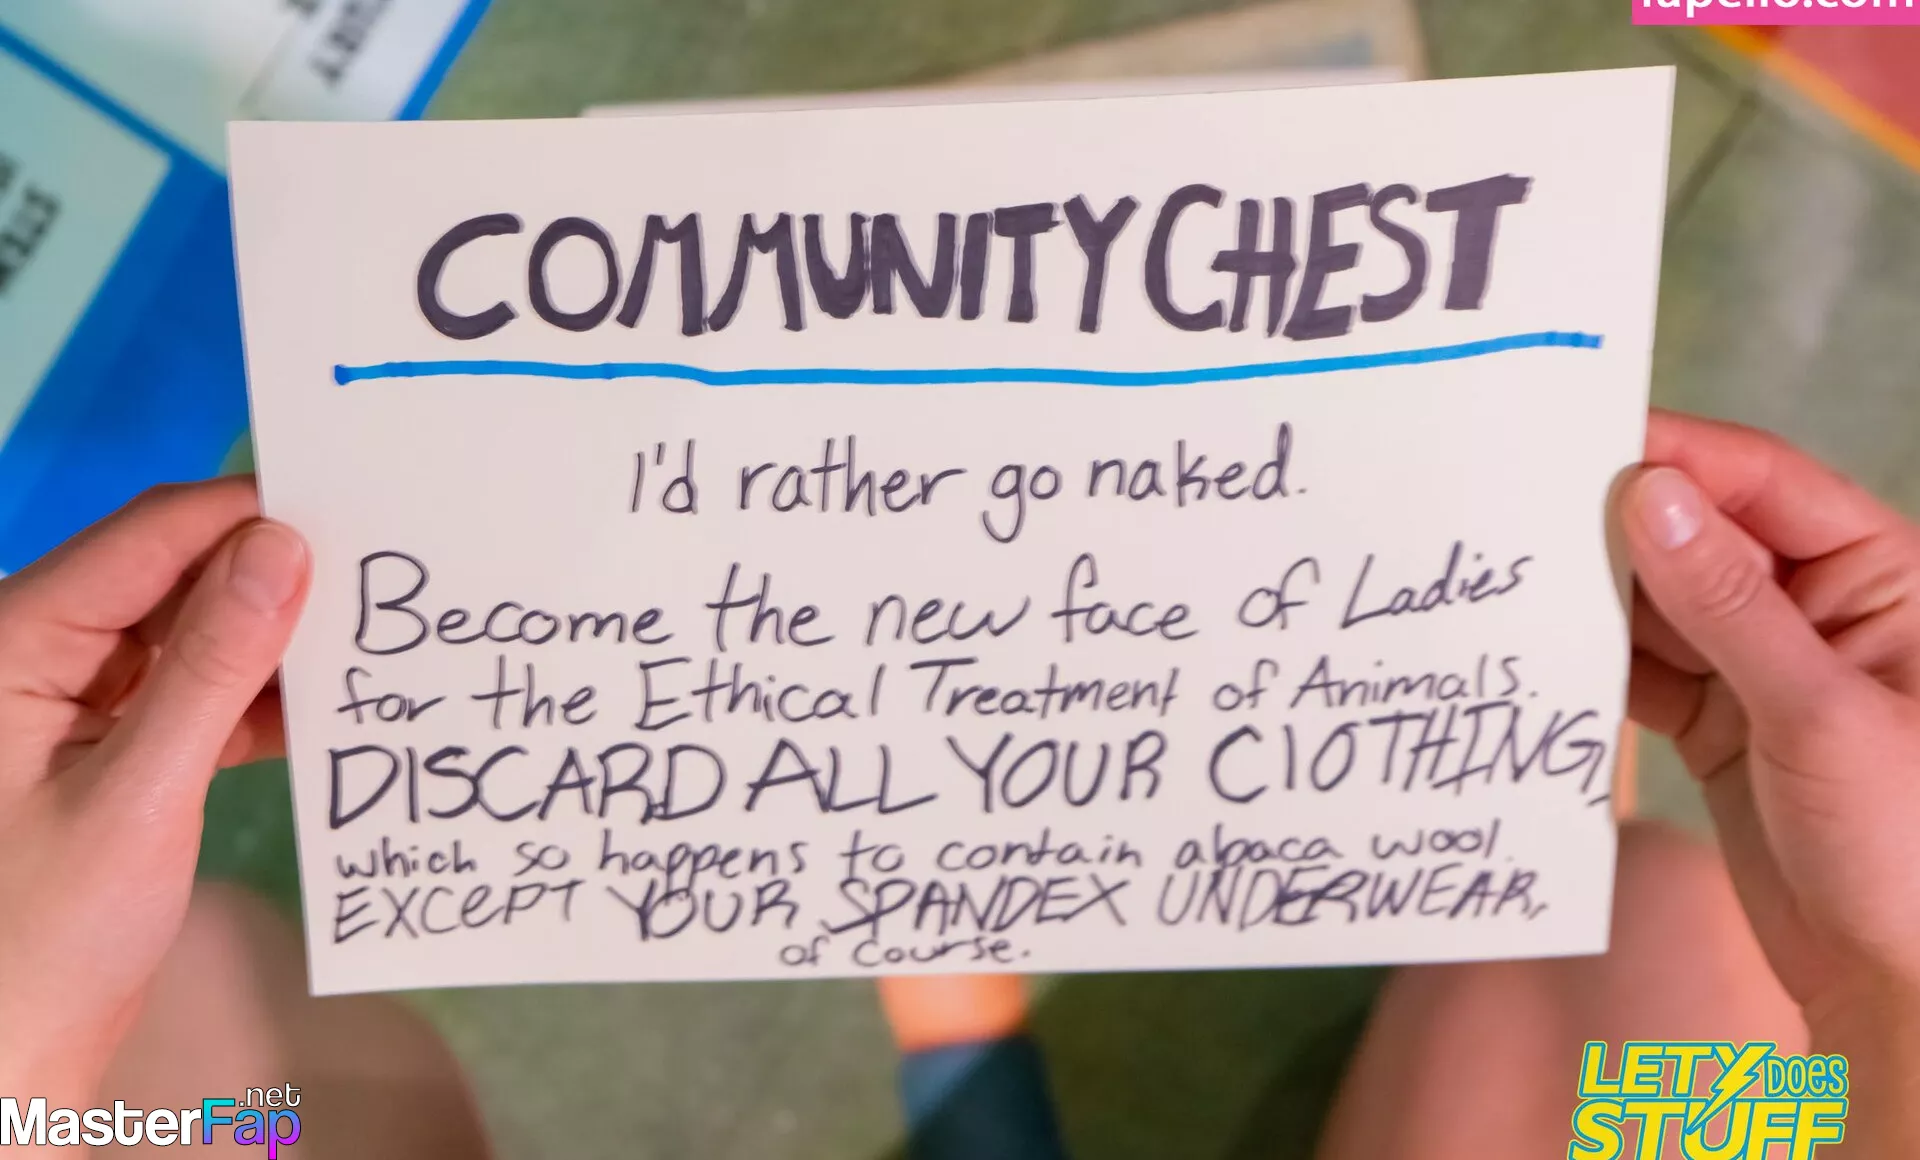 COMMUNITY CHEST
I'd rather go naked.
Become the new face of Ladies
for the Ethical Treatment of Animals.
DISCARD ALL YOUR ClOTHING,
which so happens to contain abaca wool.
EXCePT YOUR SPANDEX UNDERWEAR,
of course.
LETY DOES
STUFF
MasterFap.net